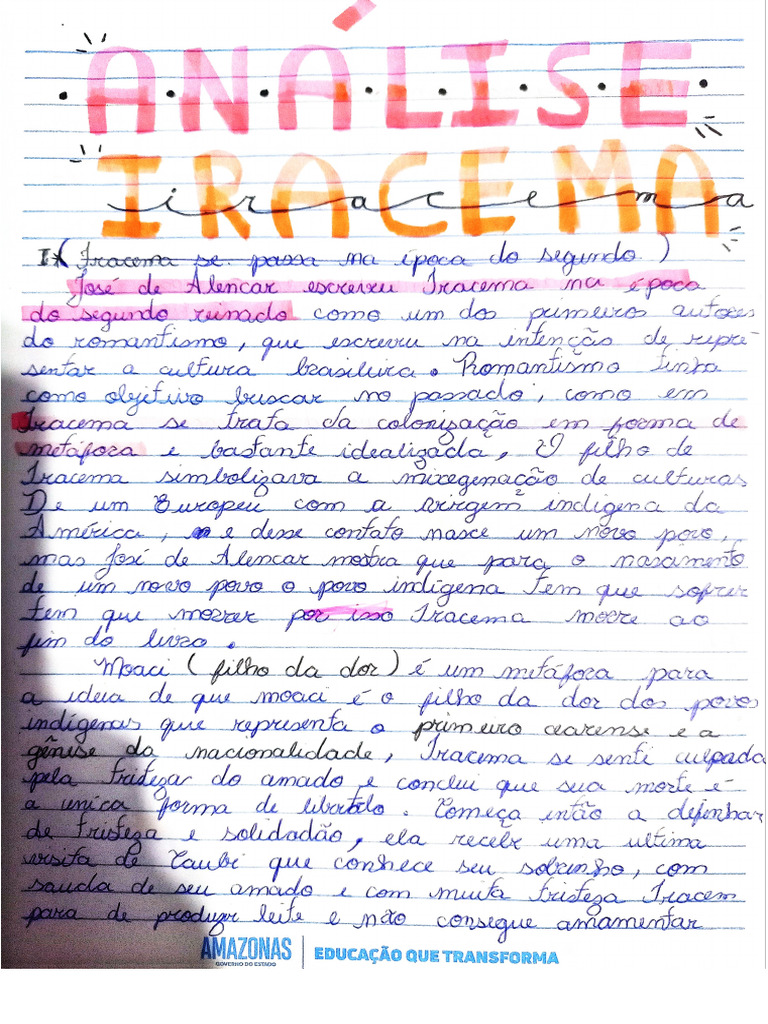 ANÁLISE
IRACEMA
iracema
I (Iracema se passa na época do segundo)
José de Alencar escreveu Iracema na época
do segundo reinado como um dos primeiros autores
do romantismo, que escreveu na intenção de repre-
sentar a cultura brasileira. Romantismo tinha
como objetivo buscar no passado, como em
Iracema se trata da colonização em forma de
metáfora e bastante idealizada, O filho de
Iracema simbolizava a mixegenação de culturas
De um Europeu com a virgem indígena da
América, e desse contato nasce um novo povo,
mas José de Alencar mostra que para o nascimento
de um novo povo o povo indígena tem que sofrer
tem que morrer por isso Iracema morre ao
fim do livro.
Moaci (filho da dor) é um metáfora para
a ideia de que moaci é o filho da dor dos povos
indígenas que representa o primeiro cearense e a
gênise da nacionalidade, Iracema se senti culpada
pela tristezar do amado e conclui que sua morte é
a unica forma de libertalo. Começa então a definhar
de tristeza e solidadão, ela recebe uma ultima
visita de Caubi que conhece seu sobrinho, com
sauda de seu amado e com muita tristeza Iracem
para de produzir leite e não consegue amamentar
AMAZONAS
GOVERNO DO ESTADO
EDUCAÇÃO QUE TRANSFORMA